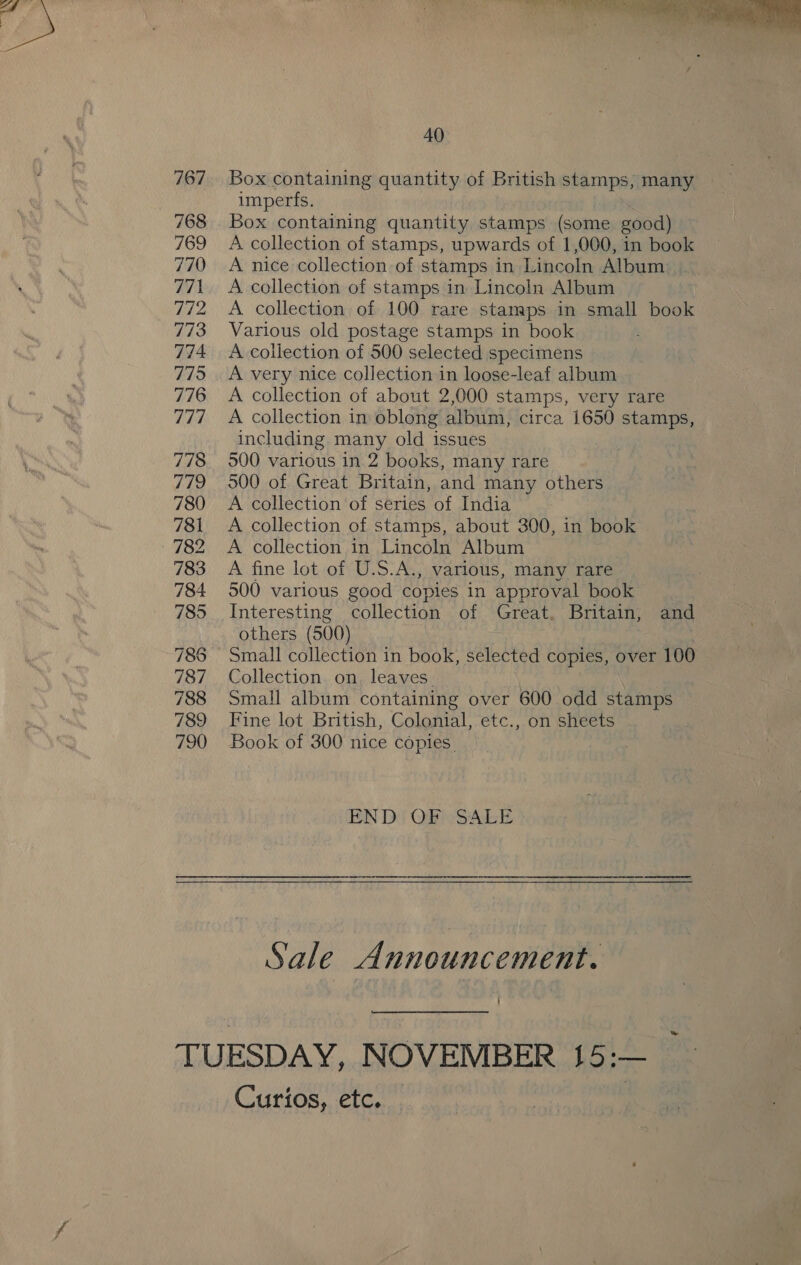 40
767 Box containing quantity of British stamps, many
imperfs.
768 Box containing quantity stamps (some good)
769 A collection of stamps, upwards of 1,000, in book
770 A nice collection of stamps in Lincoln Album
771 A collection of stamps in Lincoln Album
772 A collection of 100 rare stamps in small book
773 Various old postage stamps in book
774 A collection of 500 selected specimens
775 A very nice collection in loose-leaf album
776 A collection of about 2,000 stamps, very rare
777 A collection in oblong album, circa 1650 stamps,
including many old issues
778 500 various in 2 books, many rare
779 500 of Great Britain, and many others
780 A collection of series of India
781 A collection of stamps, about 300, in book
782 A collection in Lincoln Album
783 A fine lot of U.S.A., various, many rare
784 500 various good copies in approval book
785 Interesting collection of Great. Britain, and
others (500)
786 Small collection in book, selected copies, over 100
787 Collection on leaves
788 Small album containing over 600 odd stamps
789 Fine lot British, Colonial, etc., on sheets
790 Book of 300 nice copies
END OF SALE
Sale Announcement.
TUESDAY, NOVEMBER 15:—
Curios, etc.